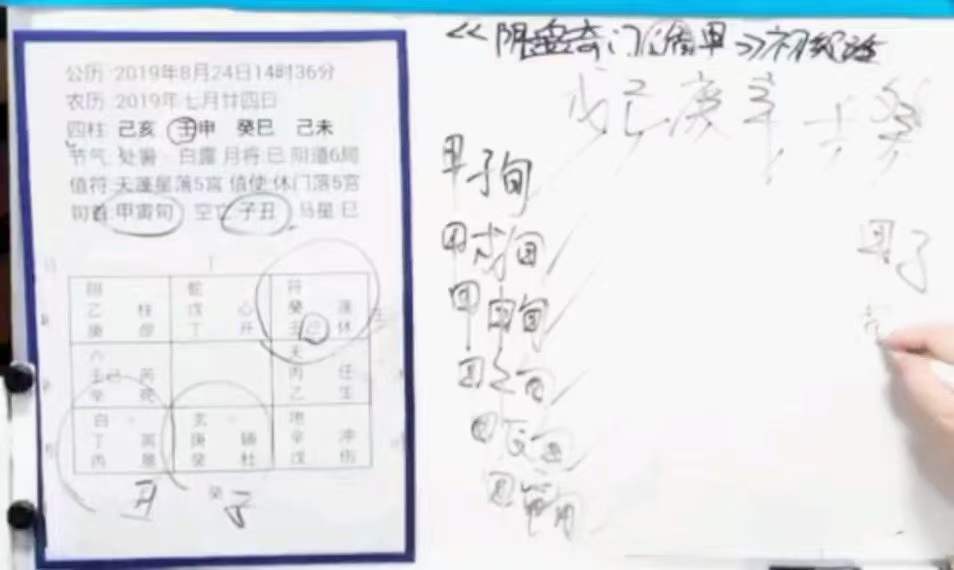 公历:2019年8月24日14时36分
农历:2019年七月廿四日
四柱:己亥 壬申 癸巳 己未
节气:处暑 白露 月将:巳 阳遁6局
值符:天蓬星落5宫 值使:休门落5宫
旬首:甲寅旬 空亡:子丑 马星:巳
蛇 符
乙 柱 戊 心 癸 蓬
庚 丁 开 壬己 休
丙 任
辛 乙 生
白 玄 地
丁 英 庚 辅 辛 冲
丙 景 癸 杜 戊 伤
丑 子
戊己庚辛壬癸
甲子旬
甲戌旬
甲申旬
甲午旬
甲辰旬
甲寅旬
甲子